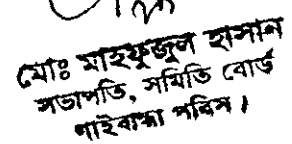 মোঃ মাহফুজুল হাসান
সভাপতি, সমিতি বোর্ড
গাইবান্ধা পবিস।